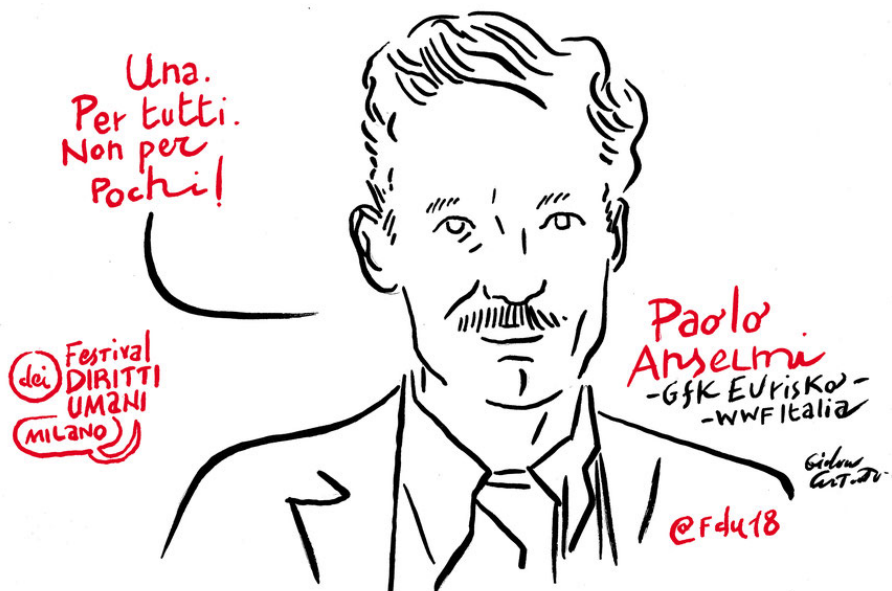 Una.
Per tutti.
Non per
Pochi!
Festival
dei DIRITTI
UMANI
MILANO
Paolo
Anselmi
-GfK EUrisko-
-WWF Italia
@Fdu18